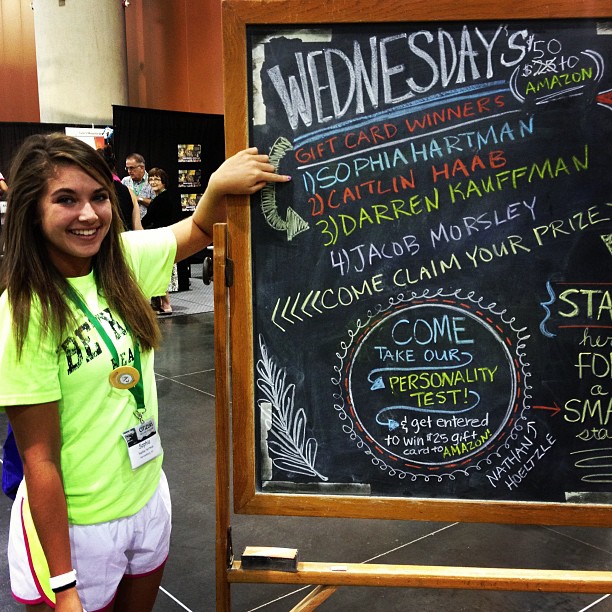 WEDNESDAY'S
$50
$25 to
AMAZON
GIFT CARD WINNERS
1) SOPHIA HARTMAN
2) CAITLIN HAAB
3) DARREN KAUFFMAN
4) JACOB MORSLEY
<<<< COME CLAIM YOUR PRIZE
COME
TAKE OUR
PERSONALITY
TEST!
& get entered
to win $25 gift
card to AMAZON
NATHAN
HOELTZLE
STA
her
FO
a
SMA
sta